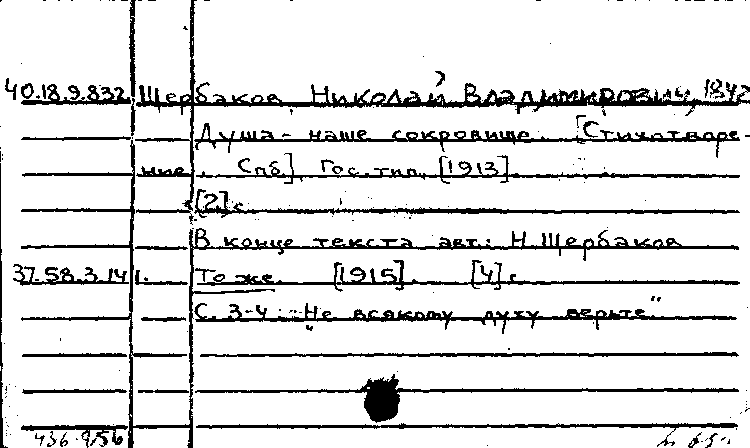 40.18.9.832 Щербаков, Николай Владимирович, 1842
Душа - наше сокровище. [Стихотворе-
ние. Спб], Гос. тип. [1913].
[2] с.
В конце текста авт.: Н. Щербаков
37.58.3.141. То же. [1915]. [4] с.
С. 3-4: "Не всякому духу верьте"
436-9/56